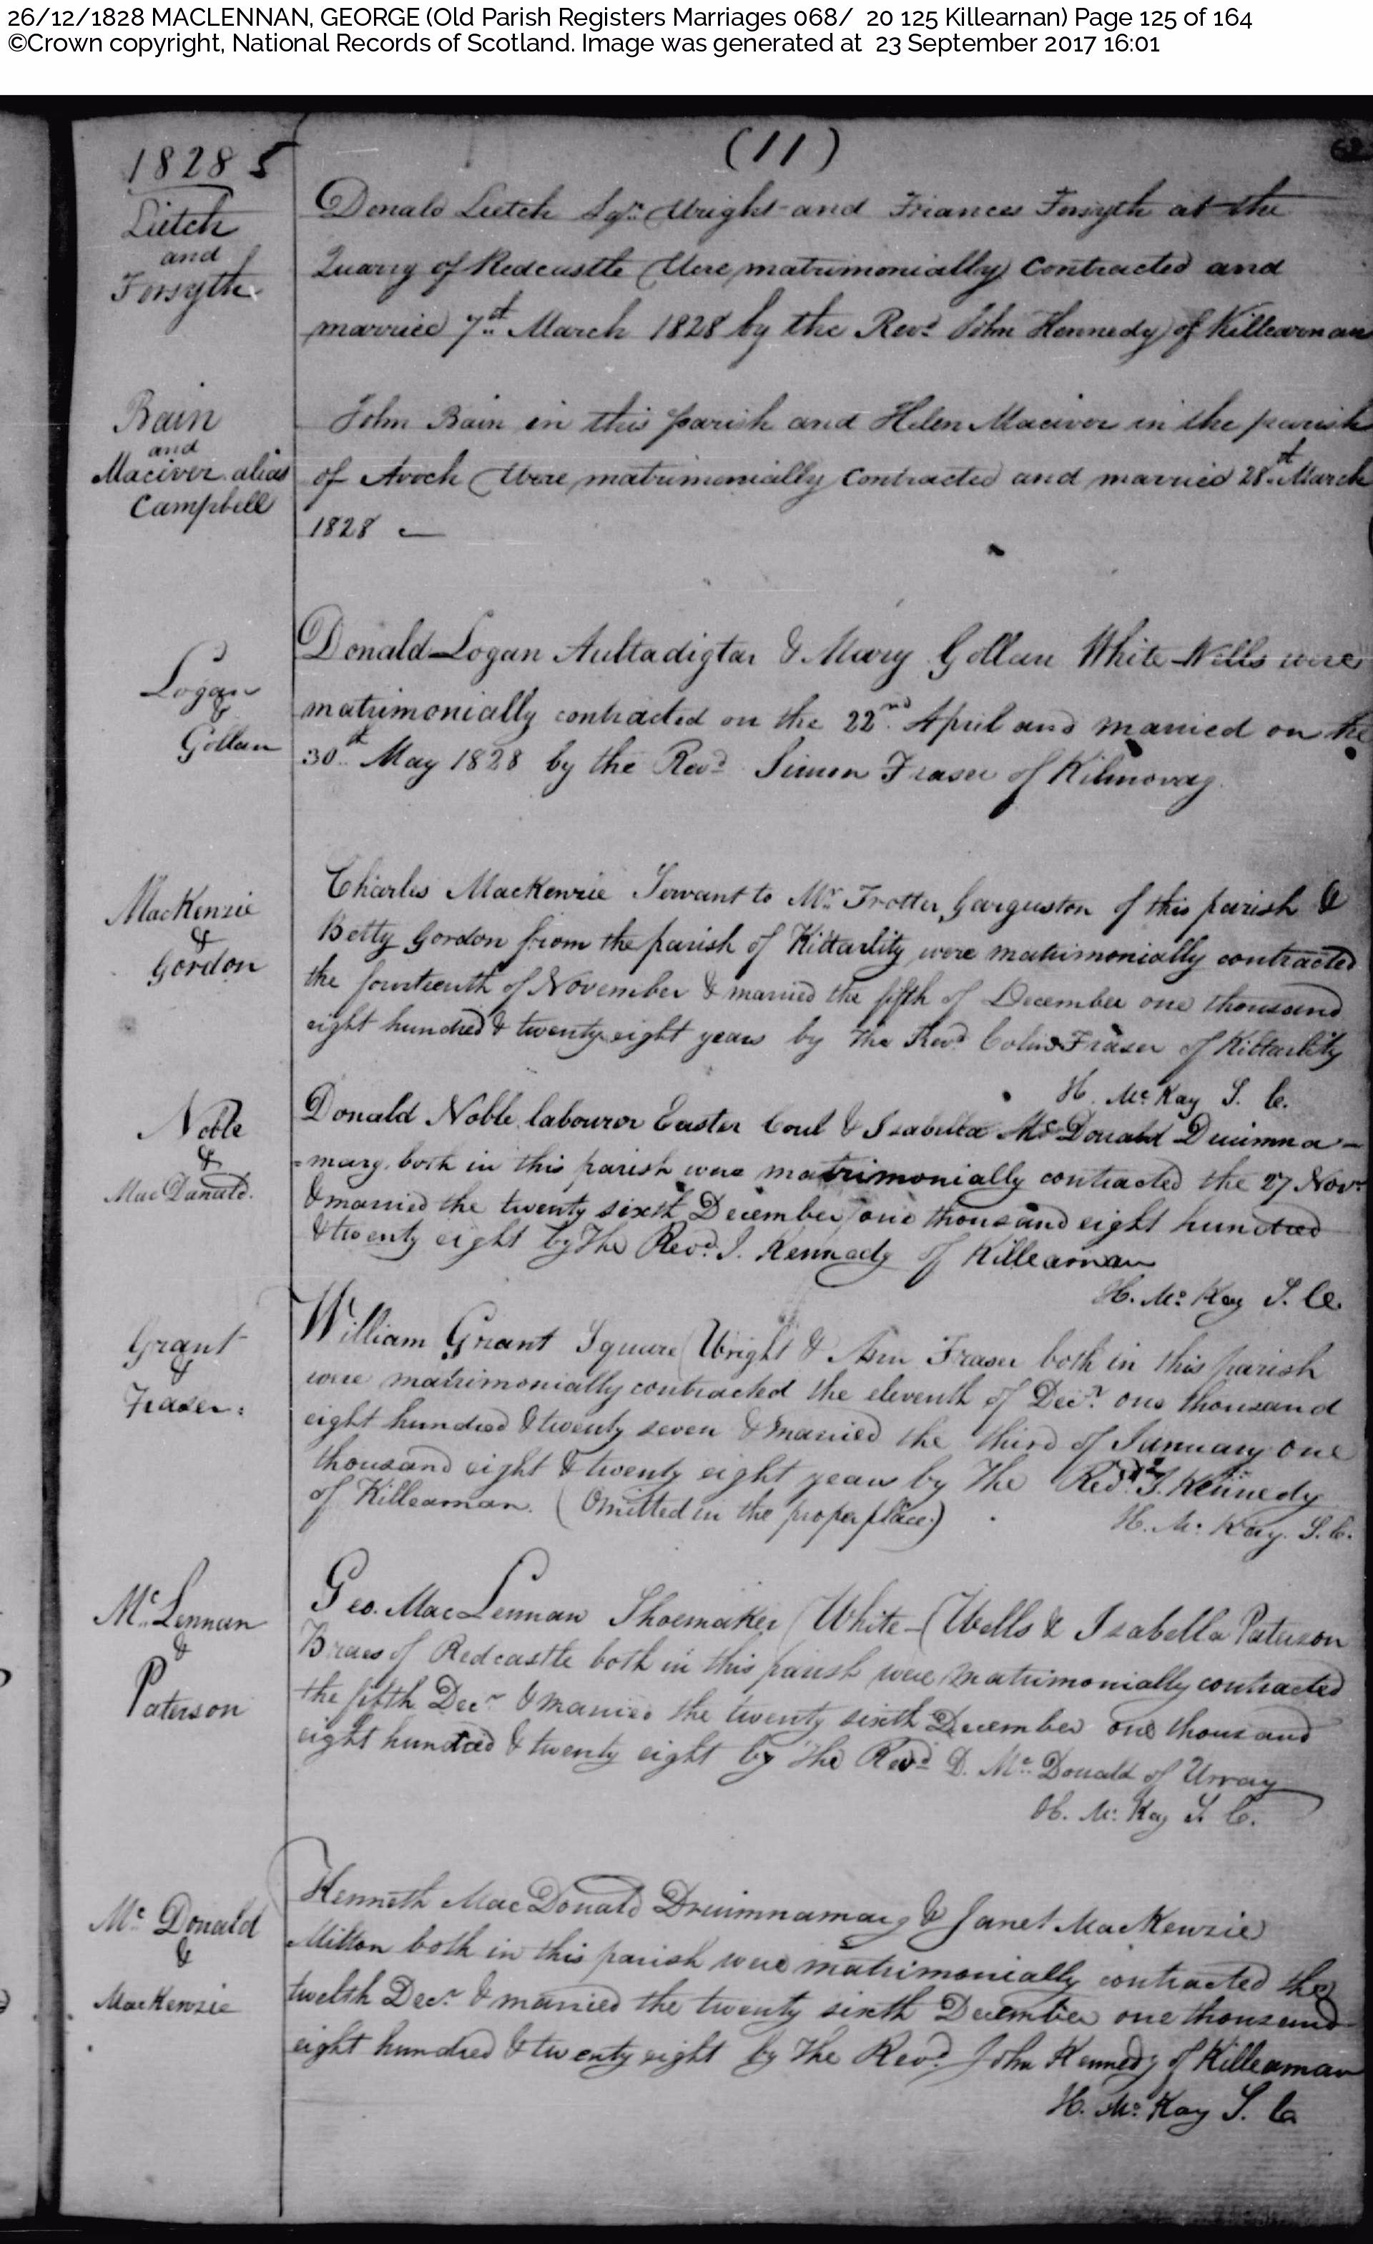 26/12/1828 MACLENNAN, GEORGE (Old Parish Registers Marriages 068/ 20 125 Killearnan) Page 125 of 164
©Crown copyright, National Records of Scotland. Image was generated at 23 September 2017 16:01
(11)
1828
Lietch
and
Forsyth
Donald Lietch Sqr. Wright and Frances Forsyth at the
Quarry of Redcastle Were matrimonially Contracted and
married 7th March 1828 by the Revd. John Kennedy of Killearnan
Bain
and
Maciver alias
Campbell
John Bain in this parish and Helen Maciver in the parish
of Avoch Were matrimonially Contracted and married 28th March
1828
Logan
&
Gollan
Donald Logan Aultadigtar & Mary Gollan White Wells were
matrimonially contracted on the 22nd. April and married on the
30th May 1828 by the Revd. Simon Fraser of Kilmorag.
MacKenzie
&
Gordon
Charles MacKenzie Servant to Mr. Trotter, Garguston of this parish &
Betty Gordon from the parish of Kiltarlity were matrimonially contracted
the fourteenth of November & married the fifth of December one thousand
eight hundred & twenty eight years by The Revd. Colin Fraser of Kiltarlity
H. Mc. Kay S. C.
Noble
&
MacDonald.
Donald Noble, labourer Easter Coul & Isabella Mc.Donald Druimna-
=marg. both in this parish were matrimonially contracted the 27 Novr.
& married the twenty sixst December one thousand eight hundred
& twenty eight by The Revd. J. Kennedy of Killearnan
H. Mc. Kay S. C.
Grant
&
Fraser:
William Grant Square Wright & Ann Fraser both in this parish
were matrimonially contracted the eleventh of Decr. one thousand
eight hundred & twenty seven & married the third of January one
thousand eight & twenty eight years by The Revd. J. Kennedy
of Killearnan. (Omitted in the proper place.)
H. Mc. Kay. S. C.
Mc. Lennan
&
Paterson
Geo. MacLennan Shoemaker White-Wells & Isabella Paterson
Braes of Redcastle both in this parish were matrimonially contracted
the fifth Decr. & married the twenty sixth December one thousand
eight hundred & twenty eight by The Revd. D. Mc. Donald of Urray
H. Mc. Kay S. C.
Mc. Donald
&
MacKenzie
Kenneth MacDonald Druimnamarg & Janet MacKenzie
Milton both in this parish were matrimonially contracted the
twelth Decr. & married the twenty sixth December one thousand
eight hundred & twenty eight by The Revd. John Kennedy of Killearnan
H. Mc. Kay S. C.